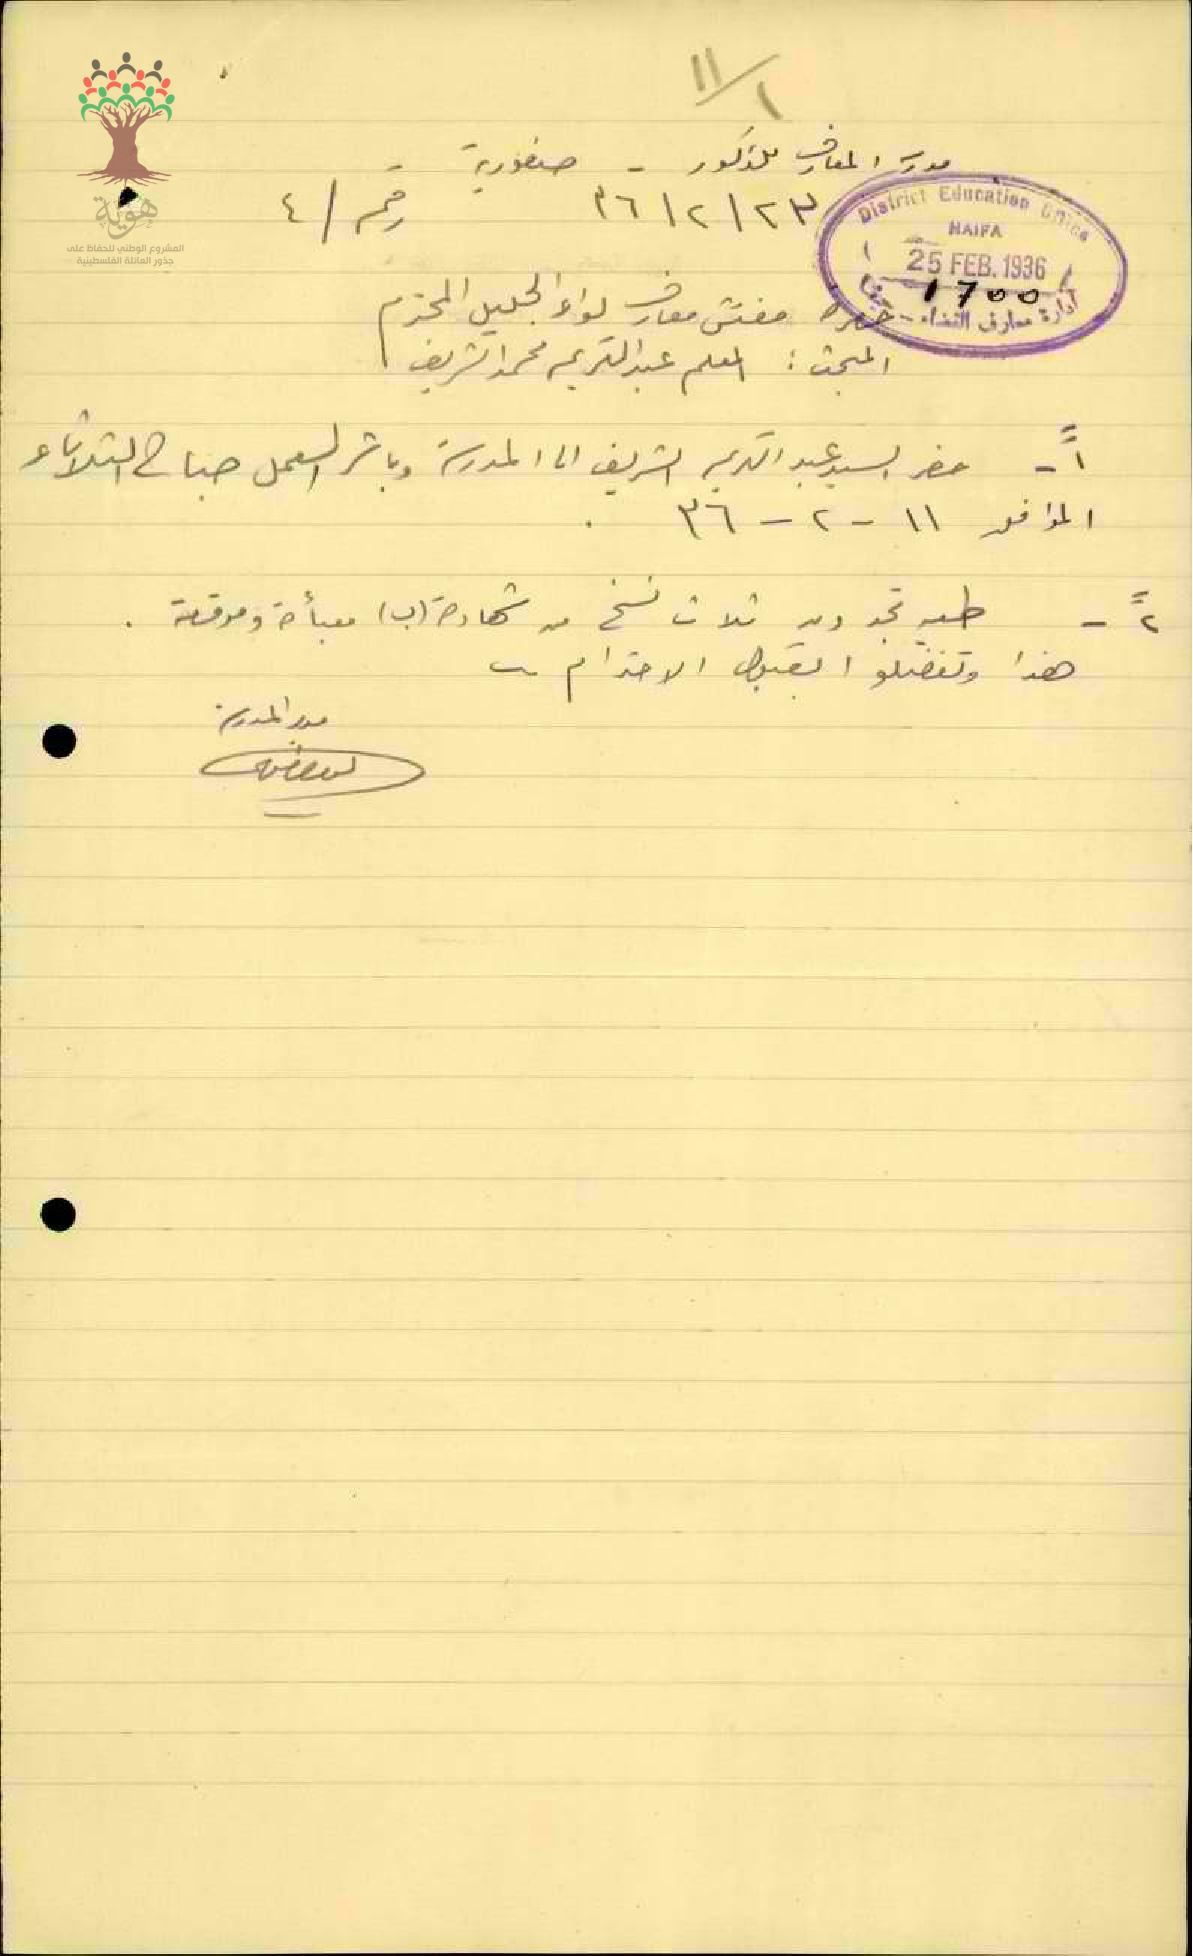 ١١/١
مدرسة المعارف للذكور - صفورية
٢٣/٢/٣٦ رقم /٤
District Education Office
HAIFA
25 FEB. 1936
1700
ادارة معارف القضاء - حيفا
هوية
المشروع الوطني للحفاظ على
جذور العائلة الفلسطينية
حضرة مفتش معارف لواء الجليل المحترم
المبحث : المعلم عبد الكريم محمد الشريف
١ً - حضر السيد عبد الكريم الشريف الى المدرسة وباشر العمل صباح الثلاثاء
الموافق ١١ - ٢ - ٣٦ .
٢ً - طيه تجدون ثلاث نسخ من شهادة (ب) معبأة وموقعة .
هذا وتفضلوا بقبول الاحترام
مدير المدرسة